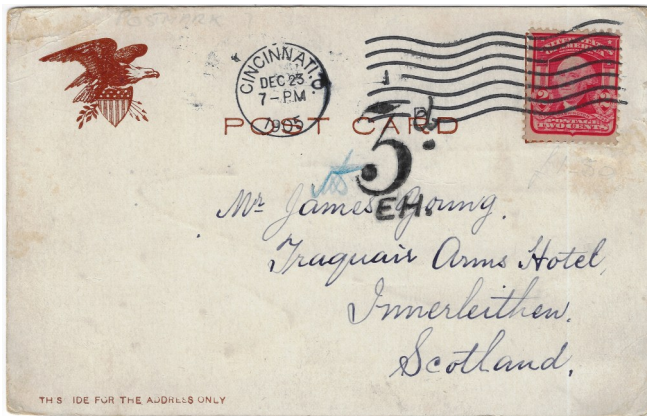 POSMARK
CINCINNATI, O.
DEC 23
7-PM
1905
POST CARD
3D.
EH.
POSTAGE
TWO CENTS
Mr James Young.
Traquair Arms Hotel,
Innerleithen.
Scotland.
TH S IDE FOR THE ADDRESS ONLY